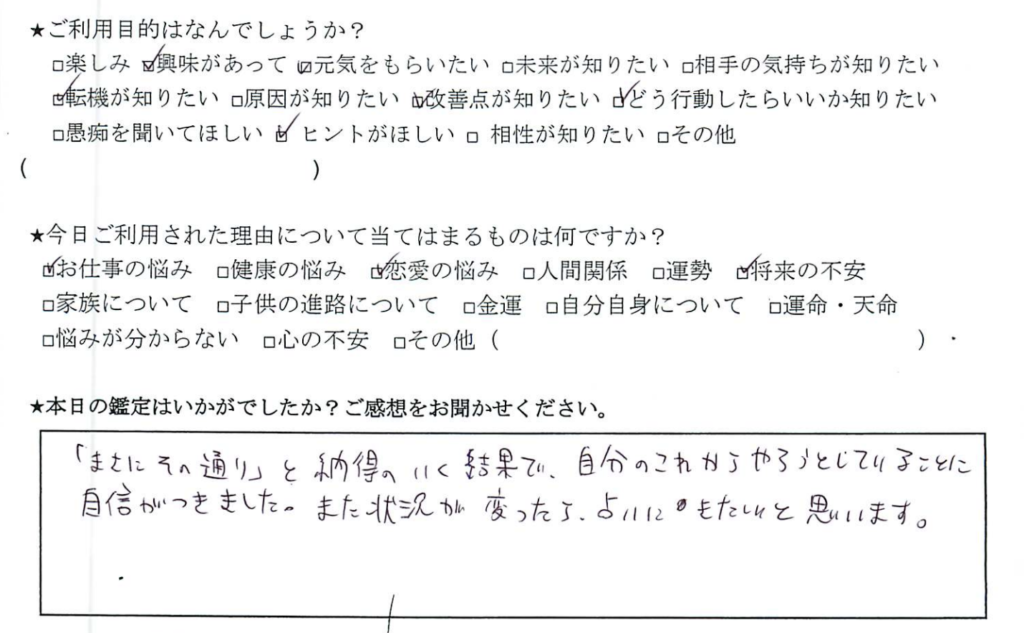 ★ご利用目的はなんでしょうか？
□楽しみ ☑興味があって ☑元気をもらいたい □未来が知りたい □相手の気持ちが知りたい
☑転機が知りたい □原因が知りたい ☑改善点が知りたい ☑どう行動したらいいか知りたい
□愚痴を聞いてほしい ☑ ヒントがほしい □ 相性が知りたい □その他
(　　　　　　　　　　)
★今日ご利用された理由について当てはまるものは何ですか？
☑お仕事の悩み □健康の悩み ☑恋愛の悩み □人間関係 □運勢 ☑将来の不安
□家族について □子供の進路について □金運 □自分自身について □運命・天命
□悩みが分からない □心の不安 □その他（　　　　　　　　　　）
★本日の鑑定はいかがでしたか？ご感想をお聞かせください。
「まさにその通り」と納得のいく結果で、自分のこれからやろうとしていることに
自信がつきました。また状況が変ったら、占いに もたいと思います。